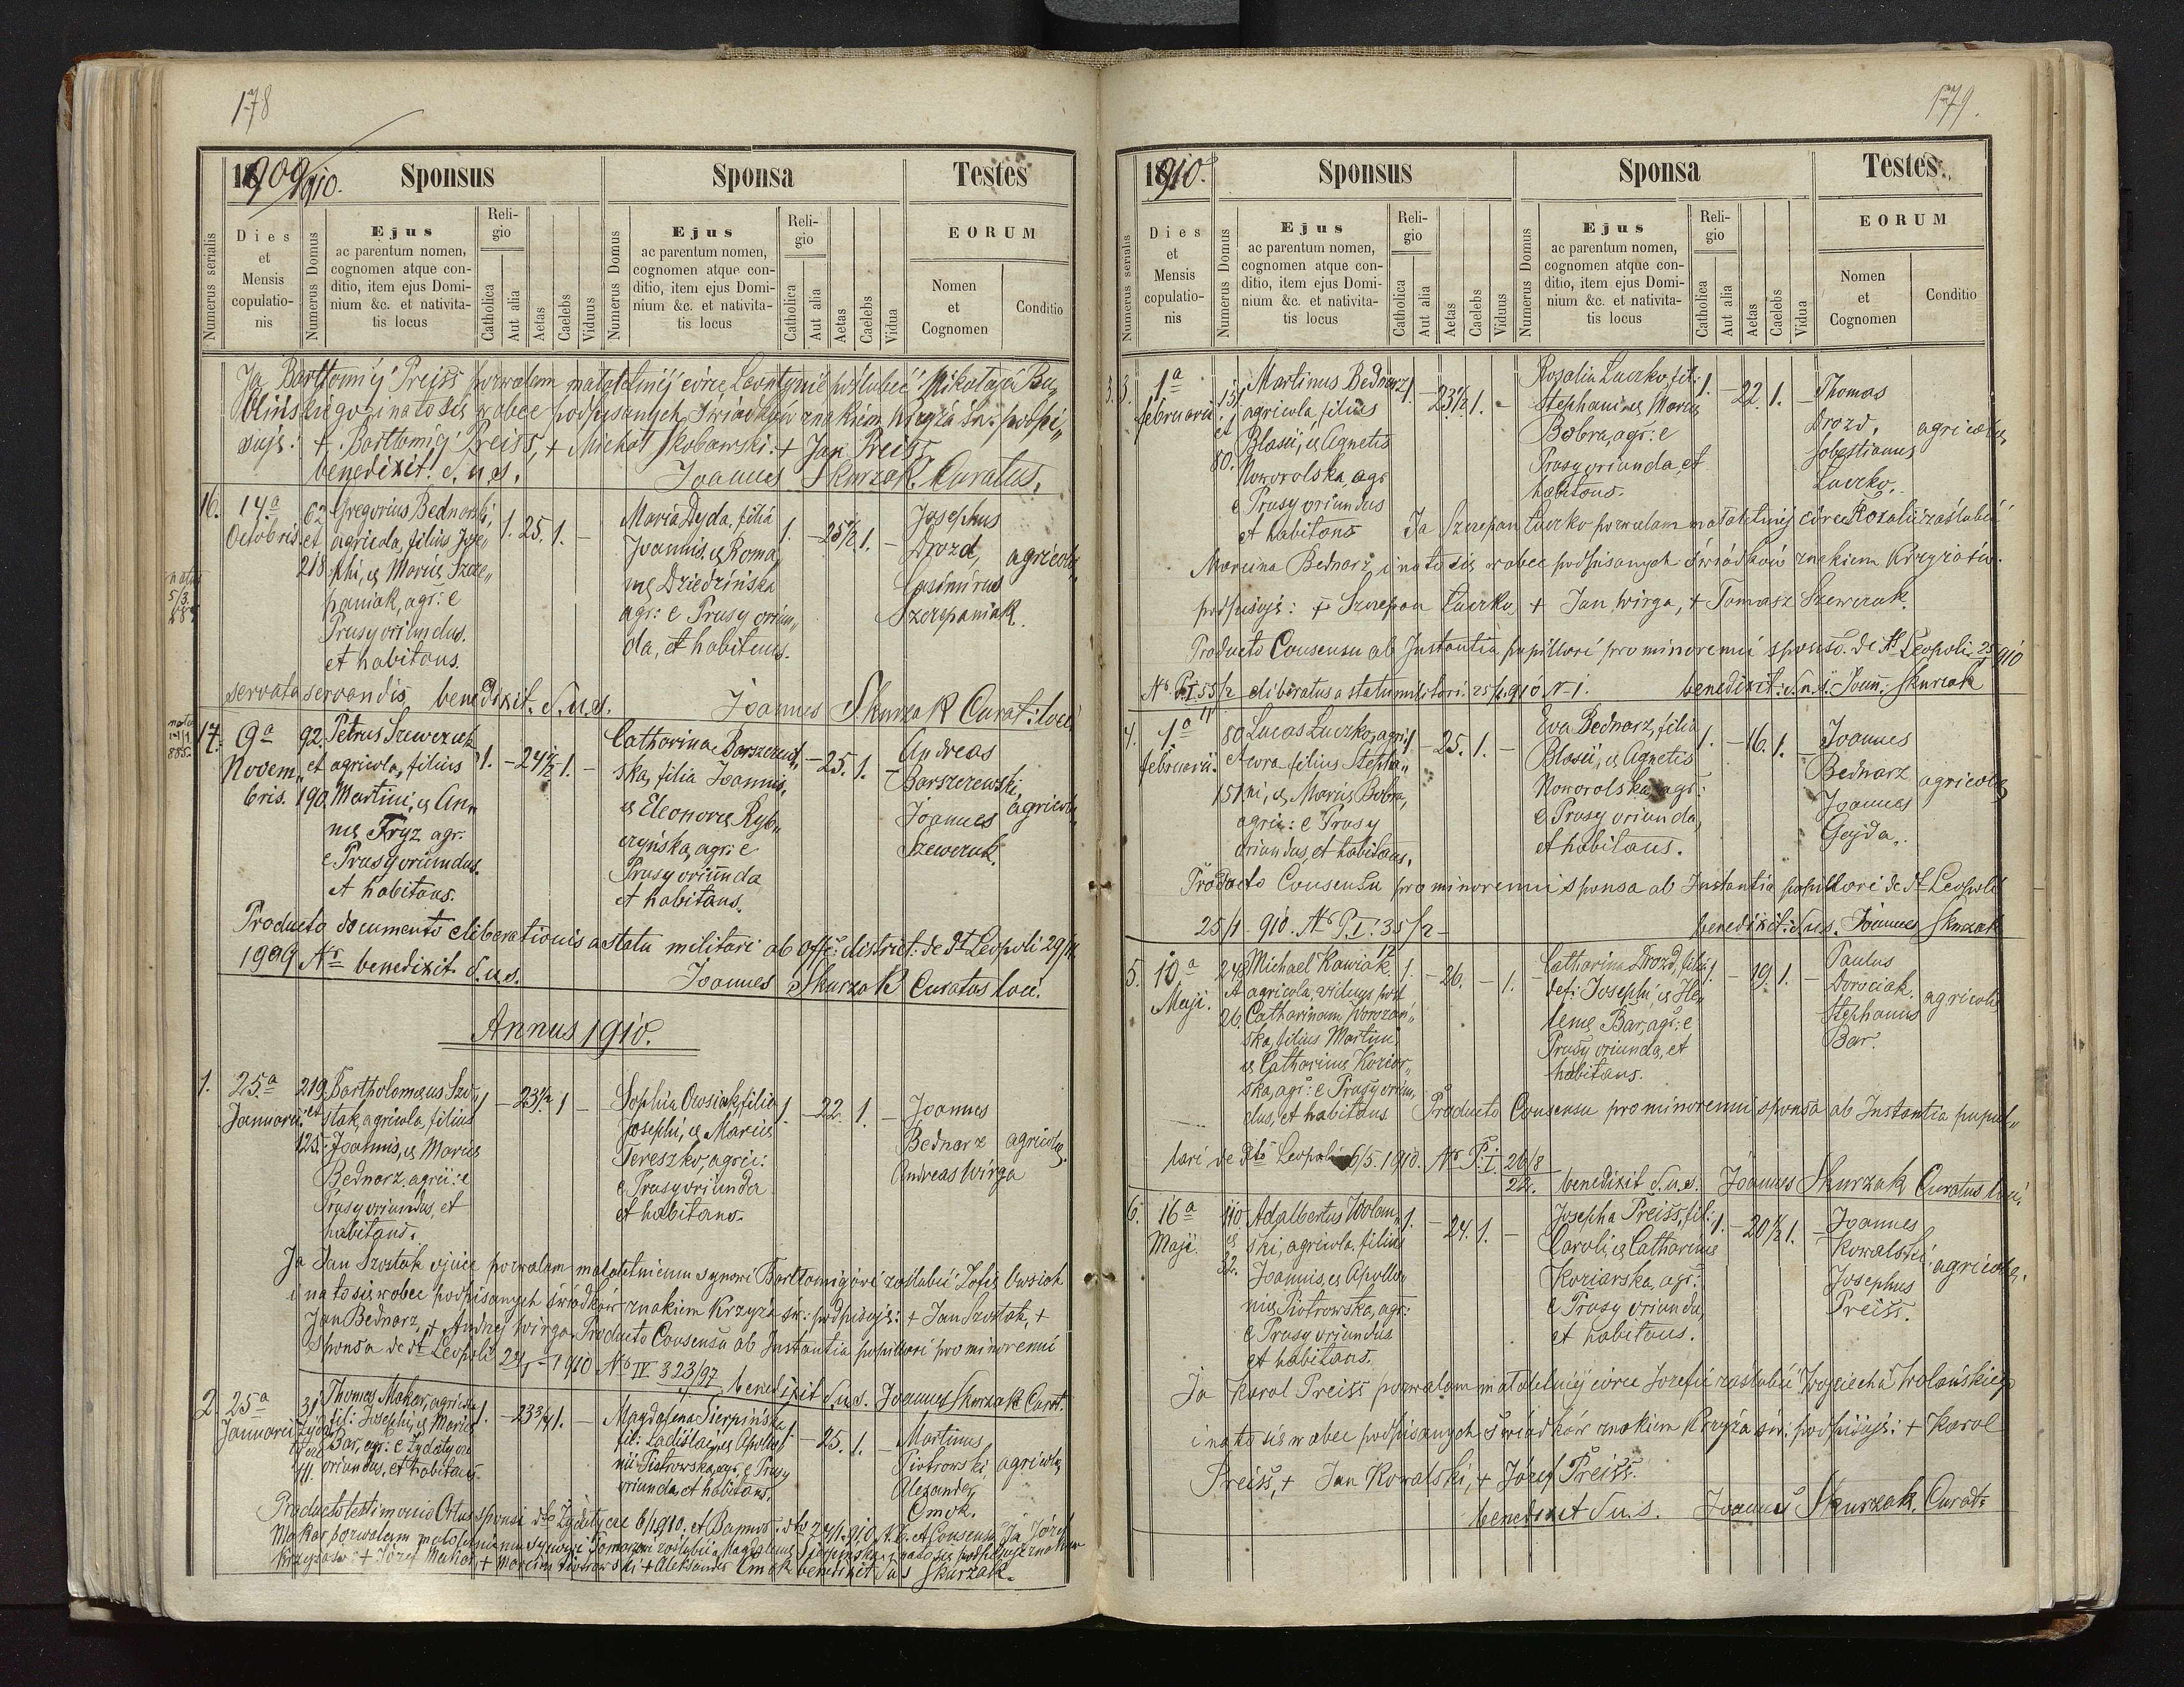 178
1909/1910.
Sponsus
Sponsa
Testes
Numerus serialis
Dies
et
Mensis
copulatio-
nis
Numerus Domus
Ejus
ac parentum nomen,
cognomen atque con-
ditio, item ejus Domi-
nium &c. et nativita-
tis locus
Reli-
gio
Catholica
Aut alia
Aetas
Caelebs
Viduus
Numerus Domus
Ejus
ac parentum nomen,
cognomen atque con-
ditio, item ejus Domi-
nium &c. et nativita-
tis locus
Reli-
gio
Catholica
Aut alia
Aetas
Caelebs
Vidua
EORUM
Nomen
et
Cognomen
Conditio
Ja Bartłomiej Preiss pozwalam małoletniej córce Leontynie poślubić Mikołaja Bu„
blińskiego i na to się wobec podpisanych świadków znakiem krzyża św. podpi„
suję: + Bartłomiej Preiss, + Michał Skobawski + Jan Preiss,
benedixit S.u.s. Joannes Skurzak, Curatus.
16. 14a
Octobris
62
et
218
Gregorius Bednarski,
agricola, filius Jose„
phi, & Mariæ Szcze„
paniak, agr: e
Prusy oriundus.
et habitans.
1. 25. 1. –
Maria Dyda, filia
Joannis, & Roma„
næ Dziedzińska
agr: e Prusy oriun„
da, et habitans.
1. – 25 1/2 1. –
Josephus
Drozd,
Casimirus
Szczepaniak.
agricolæ
servatis servandis benedixit. S.u.s. Joannes Skurzak Curat: loci
17. 9a
Novem„
bris.
92.
et
190
Petrus Szewczuk
agricola, filius
Martini, & An„
næ Fryz agr:
e Prusy oriundus.
et habitans.
1. – 24 1/2 1. –
Catharina Barszczew„
ska, filia Joannis,
& Eleonoræ Ryb„
czyńska, agr: e
Prusy oriunda
et habitans.
– 25. 1. –
Andreas
Barszczewski,
Joannes
Szewczuk.
agricolæ
Producto documento eliberationis a statu militari ab Offi: district: de dt Leopoli 29/
1909 No benedixit S.u.s. Joannes Skurzak Curatus loci.
Annus 1910.
1. 25.a
Januarii
219
et
125.
Bartholomæus Szo„
stak, agricola, filius
Joannis, & Mariæ
Bednarz, agric: e
Prusy oriundus, et
habitans.
1 – 23 1/2 1 –
Sophia Owsiak, filia
Josephi, & Mariæ
Tereszko, agric:
e Prusy oriunda
et habitans.
1. – 22 1 –
Joannes
Bednarz
Andreas Wirga
agricolæ
Ja Jan Szostak ojciec pozwalam małoletniemu synowi Bartłomiejowi zaślubić Zofię Owsiak
i na to się wobec podpisanych świadków znakiem krzyża św: podpisuję: + Jan Szostak, +
Jan Bednarz, + Andrej Wirga. Producto Consensu ab Instantia pupillari pro minorenni
sponsa de dt Leopoli 1910 No IV 323/97 benedixit S.u.s. Joannes Skurzak Curat.
2. 25a
Januarii
31
Thomas Makar, agricola
fil: Josephi, & Mariæ
Bar, agr: e Żydatycze
oriundus, et habitans
1. – 23 3/4 1. –
Magdalena Sierpińska
fil: Ladislai, & Apolo„
nii Piotrowska, agr. e Prusy
oriunda, et habitans.
1 – 25. 1. –
Martinus
Piotrowski,
Alexander
Cmok.
agricolæ
Producto testimonio Ortus sponsi dto Żydatycze 6/1 910. et Bannor. dto 24/1 910. et Consensu Ja Józef
Makar pozwalam małoletniemu synowi Tomaszowi zaślubić Magdalenę Sierpińską i na to się podpisuję znakiem
krzyża św: + Józef Makar, + Marcin Piotrowski + Aleksander Cmok benedixit S.u.s Skurzak.
179.
1910.
Sponsus
Sponsa
Testes.
Numerus serialis
Dies
et
Mensis
copulatio-
nis
Numerus Domus
Ejus
ac parentum nomen,
cognomen atque con-
ditio, item ejus Domi-
nium &c. et nativita-
tis locus
Reli-
gio
Catholica
Aut alia
Aetas
Caelebs
Viduus
Numerus Domus
Ejus
ac parentum nomen,
cognomen atque con-
ditio, item ejus Domi-
nium &c. et nativita-
tis locus
Reli-
gio
Catholica
Aut alia
Aetas
Caelebs
Vidua
EORUM
Nomen
et
Cognomen
Conditio
3. 1a
februarii
151
et
80.
Martinus Bednarz
agricola, filius
Blasii, & Agnetis
Noworolska, agr
e Prusy oriundus
et habitans
1. – 23 1/2 1. –
Rozalia Luczko, fil:
Stephani, & Mariæ
Bobra, agr: e
Prusy oriunda, et
habitans.
1. – 22. 1. –
Thomas
Drozd,
Sebastianus
Luczko.
agricolæ
Ja Szczepan Luczko pozwalam małoletniej córce Rozalii zaślubić
Marcina Bednarz i na to się wobec podpisanych świadków znakiem krzyża św.
podpisuję: + Szczepan Luczko, + Jan Wirga, + Tomasz Szewczuk.
Producto Consensu ab Instantia pupillari pro minorenni sponso. de dt Leopoli 25/1 910
No P.I.55/2 eliberatus a statu militari 25/1 910 N–1. benedixit: S.u.s. Joann: Skurzak
4. 1a
februarii.
80
et
151
Lucas Luczko, agri„
cola filius Stepha„
ni, & Mariæ Bobra,
agric: e Prusy
oriundus, et habitans.
1 – 25. 1. –
Eva Bednarz, filia
Blasii, & Agnetis
Noworolska, agr:
e Prusy oriunda,
et habitans.
1. – 16. 1. –
Joannes
Bednarz
Joannes
Gajda.
agricolæ
Producto Consensu pro minorenni sponsa ab Instantia pupillari de dt Leopoli
25/1 910. No P.I. 35/2 – benedixit: S.u.s. Joannes Skurzak
5. 10a
Maji.
248
et
26.
Michael Kawiak.
agricola, viduus post
Catharinam
ska, filius Martini,
& Catharinæ Koziar„
ska, agr: e Prusy oriun„
dus, et habitans
1. – 26. – 1.
Catharina Drozd, filia
def: Josephi, & He„
lenæ Bar, agr: e
Prusy oriunda, et
habitans.
1. – 19. 1. –
Paulus
Dorociak.
Stephanus
Bar.
agricolæ
Producto Consensu pro minorenni sponsa ab Instantia pupil„
lari de dto Leopoli 6/5. 1910. No P.I. 26/8
22. benedixit S.u.s. Joannes Skurzak Curatus loci.
6. 16a
Maji.
110
&
32.
Adalbertus Wolań„
ski, agricola, filius
Joannis, & Apollo„
niæ Piotrowska, agr:
e Prusy oriundus
et habitans.
1. – 24. 1. –
Josepha Preiss, fil:
Caroli, & Catharinæ
Koziarska, agr:
e Prusy oriunda,
et habitans.
1. – 20 1/2 1. –
Joannes
Kowalski,
Josephus
Preiss.
agricolæ.
Ja Karol Preiss pozwalam małoletniej córce Józefie zaślubić Wojciecha Wolańskiego
i na to się w obec podpisanych świadków znakiem krzyża św: podpisuję: + Karol
Preiss, + Jan Kowalski, + Józef Preiss.
benedixit S.u.s. Joannes Skurzak. Curat: